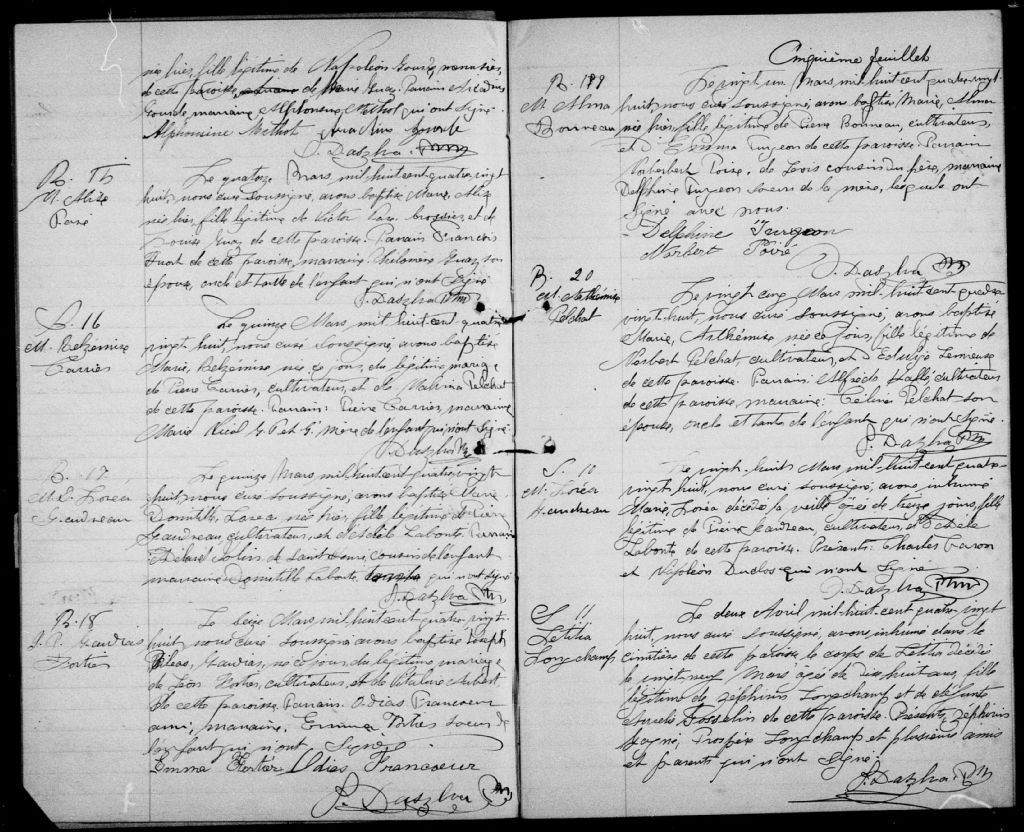 née hier, fille légitime de Napoléon Gourde, menuisier,
de cette paroisse, et de Marie Guay. Parrain Arcadius
Gourde, marraine, Alphonsine Methot qui ont signé.
Alphonsine Methot Gourde
J. Daszlva Ptre
B. 15
M. Alize
Paré
Le quatorze Mars mil-huit-cent-quatre-vingt
huit, nous curé soussigné, avons baptisé Marie, Alize
née hier, fille légitime de Victor Paré, et de
Louise Guay de cette paroisse. Parrain François
Huot de cette paroisse, marraine, Philomène Guay son
épouse, oncle et tante de l'enfant qui n'ont signé
J. Daszlva Ptre
B. 16
M. Belzémire
Carrier
Le quinze Mars, mil-huit-cent-quatre
vingt-huit, nous curé soussigné, avons baptisé
Marie, Belzémire née ce jour, du légitime mariage
de Pierre Carrier, cultivateur, et de Malvina Pelchat
de cette paroisse. Parrain: Pierre Carrier, marraine
Marie Nicol G. P. et G. mère de l'enfant qui n'ont signé
J. Daszlva Ptre
B. 17
M. D. Loréa
Gaudreau
Le quinze Mars, mil-huit-cent-quatre-vingt
huit, nous curé soussigné, avons baptisé Marie
Domitille, Lorea, née hier, fille légitime de Pierre
Gaudreau, cultivateur, et d'Adèle Labonté. Parrain
Colin de Saint Henri, cousin de l'enfant
marraine Domitille Labonté qui n'ont signé
J. Daszlva Ptre
B. 18
J. P. Gaudias
Fortier
Le seize Mars, mil-huit-cent-quatre-vingt-
huit nous curé soussigné avons baptisé Joseph
Piléas, Gaudias, né ce jour, du légitime mariage
de Léon Fortier, cultivateur, et de Aubert
de cette paroisse. Parrain. Odias Francoeur
ami, marraine, Emma Fortier soeur de
l'enfant qui n'ont signé
Emma Fortier Odias Francoeur
J. Daszlva Ptre
Cinquième feuillet
B. 199
M. Alma
Bonneau
Le vingt un Mars, mil-huit-cent-quatre-vingt-
huit, nous curé soussigné, avons baptisé, Marie, Alma
née hier, fille légitime de Pierre Bonneau, cultivateur,
et D' Emma Turgeon de cette paroisse. Parrain
Norbert Poiré, de Lévis cousin du père, marraine
Delphine Turgeon soeur de la mère, lesquels ont
signé avec nous.
Delphine Turgeon
Norbert Poiré
J. Daszlva Ptre
B. 20
M. Arthémise
Pelchat
Le vingt cinq Mars, mil-huit-cent-quatre
vingt-huit, nous curé soussigné, avons baptisé
Marie, Arthémise née ce jour, fille légitime de
Norbert Pelchat, cultivateur, et d'Edwige Lemieux
de cette paroisse. Parrain: Alfred Hallé, cultivateur
de cette paroisse, marraine: Célina Pelchat son
épouse, oncle et tante de l'enfant qui n'ont signé.
J. Daszlva Ptre
S. 10
M. Loréa
Gaudreau
Le vingt-huit Mars, mil-huit-cent-quatre-
vingt-huit, nous curé soussigné, avons inhumé
Marie, Loréa décédée la veille âgée de treize jours, fille
légitime de Pierre Gaudreau cultivateur, et d'Adèle
Labonté de cette paroisse. Présents: Charles Caron
et Napoléon Duclos qui n'ont signé
J. Daszlva Ptre
S. 11
Létitia
Longchamp
Le deux Avril mil-huit-cent-quatre-vingt
huit, nous curé soussigné, avons inhumé dans le
cimetière de cette paroisse le corps de Létitia décédée
le vingt neuf Mars âgée de dix huit ans, fille
légitime de Zéphirin Longchamp et de défunte
Aurélie Gosselin de cette paroisse. Présents, Zéphirin
Gagné, Prospère Longchamp et plusieurs amis
et parents qui n'ont signé.
J. Daszlva Ptre